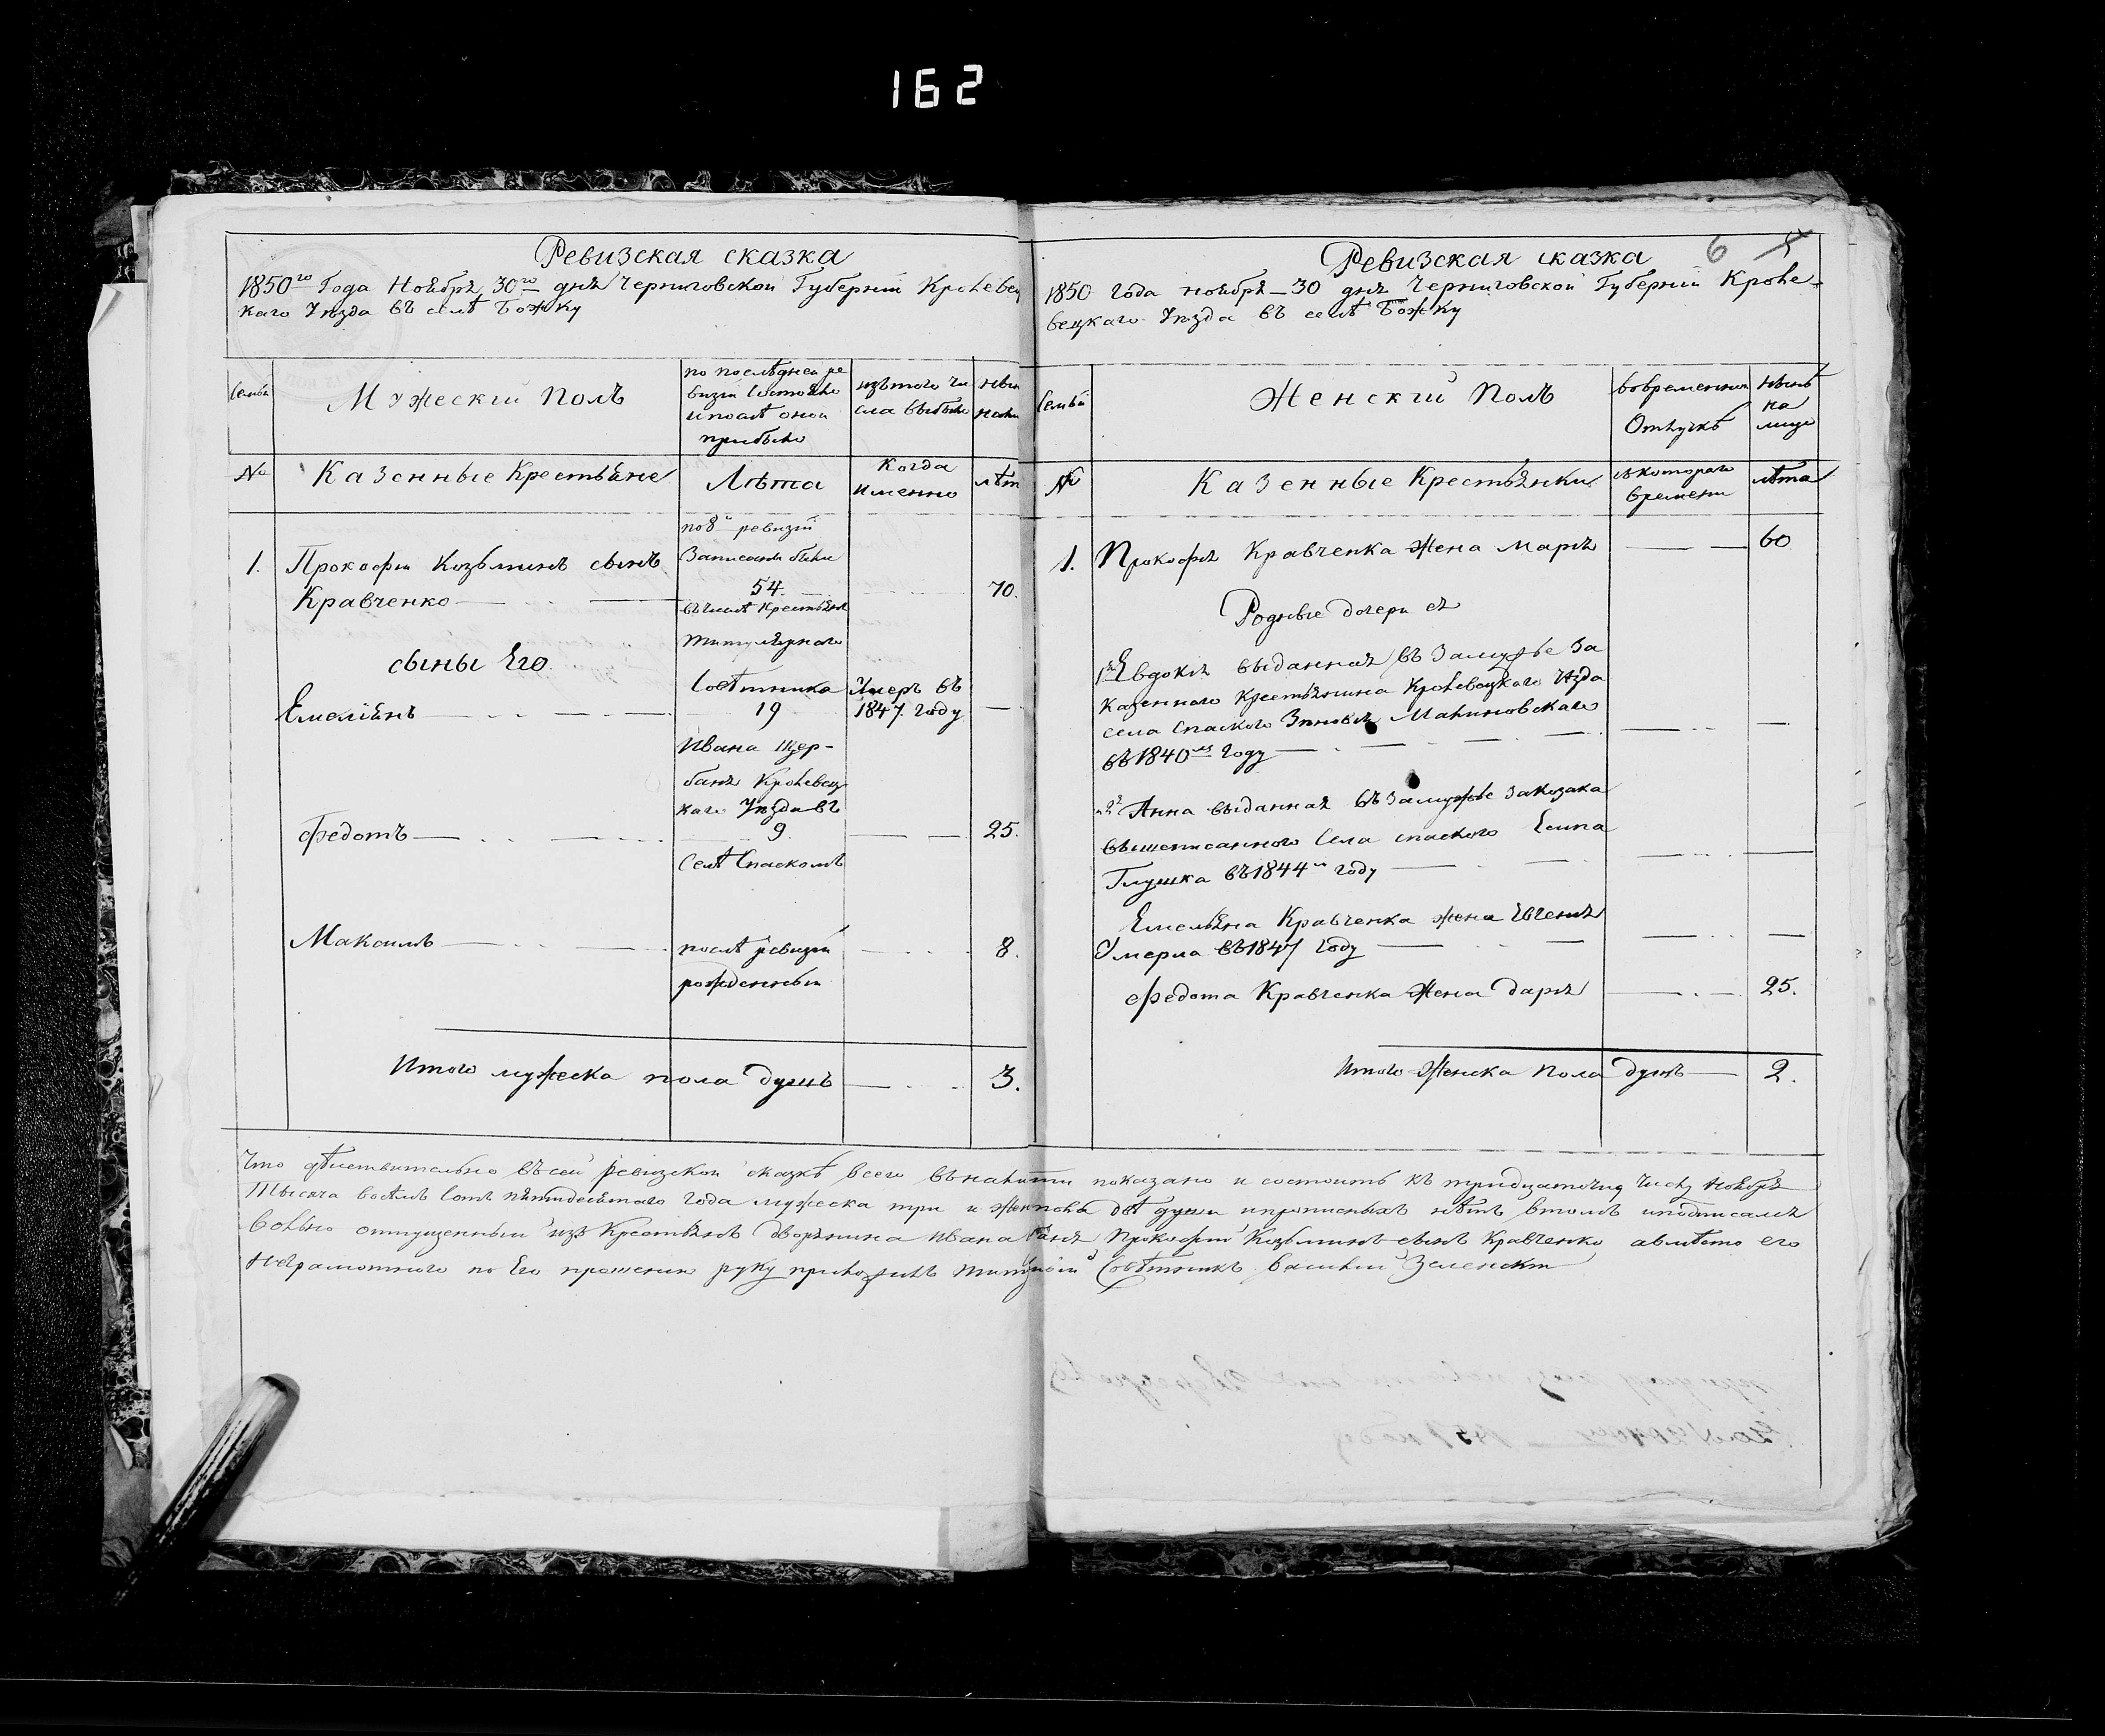 162
Ревизская сказка
1850го Года Ноября 30го дня Черниговской Губерніи Кролевец
каго Уѣзда въ селѣ Божку
Семьи
Мужескій Полъ
по послѣдней ре
визіи состояло
и послѣ оной
прибыло
изътого чи
сла выбыло
№
Казенные Крестьяне
Лѣта
Когда
именно
1.
Прокофій Козьминъ сынъ
Кравченко
по 8й ревизіи
Записаны были
54
въчислѣ Крестьянъ
70.
сыны Его
титулярнаго
Емеліянъ
Совѣтника
19
Умеръ въ
1847. году
Ивана Щер-
баня Кролевец
каго Уѣзда въ
Федотъ
9.
25.
Селѣ Спаскомъ
Максимъ
послѣ ревизіи
рожденный
8.
Итого мужеска пола душъ
3.
Ревизская сказка
6
1850 года ноября 30 дня Черниговской Губерніи Кроле-
вецкаго Уѣзда въ селѣ Божку
Семьи
Женскій Полъ
вовременной
Отлучкѣ
нынѣ
на
лицо
№
Казенные Крестьянки
съкотораго
времени
лѣта
1.
Прокофія Кравченка жена Марія
60
Родные дочери ея
1я Евдокія выданная въ Замужье За
Казенного Крестьянина Кролевецкаго Уѣзда
села Спаского Зиновія Малиновскаго
въ 1840мъ Году
2я Анна выданная въ Замужье За козака
вышеписанного Села Спаского Есипа
Глушка въ 1844м году
Емельяна Кравченка жена Евгенія
Умерла въ 1847 Году
Федота Кравченка Жена Дарія
25.
Итого Женска Пола душъ
2.
Что дѣйствительно въсей ревизской сказкѣ всего въналичіи показано и состоитъ къ тридцатому Числу Ноября
Тысяча восемь сотъ пятидесятаго года мужеска три и женска двѣ души ипрописныхъ нѣтъ втомъ иподписался
вольно отпущенный изъ Крестьянъ дворянина Ивана Прокофій Козьминъ сынъ Кравченко авмѣсто его
Неграмотного по Его прошенію руку приложилъ Совѣтникъ Василій Зеленскій